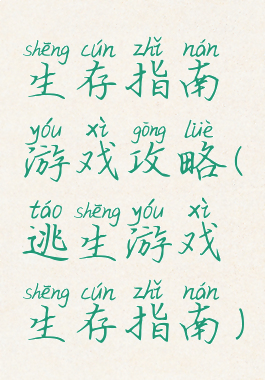 shēng cún zhǐ nán
生存指南
yóu xì gōng lüè
游戏攻略(
táo shēng yóu xì
逃生游戏
shēng cún zhǐ nán
生存指南)